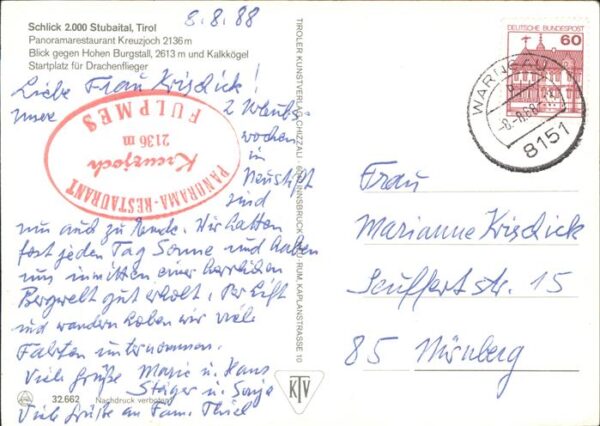 8.8.88
Schlick 2.000 Stubaital, Tirol
Panoramarestaurant Kreuzjoch 2136 m
Blick gegen Hohen Burgstall, 2613 m und Kalkkögel
Startplatz für Drachenflieger
Liebe Frau Krisdick!
unsere 2 Urlaubs
wochen
in
Neustift
sind
nun auch zu Ende. Wir hatten
fast jeden Tag Sonne und haben
uns inmitten einer herrlichen
Bergwelt gut erholt. Per Lift
und wandern haben wir viele
Fahrten unternommen.
Viele Grüße Marie u. Hans
Stöger u. Sonja
Viele Grüße an Fam. Thiel
PANORAMA-RESTAURANT
Kreuzjoch
2136 m
FULPMES
32.662 Nachdruck verboten
TIROLER KUNSTVERLAG CHIZZALI INNSBRUCK RUM, KAPLANSTRASSE 10
KTV
DEUTSCHE BUNDESPOST
60
WARNGAU
8151
Frau
Marianne Krisdick
Seuffertstr. 15
85 Nürnberg